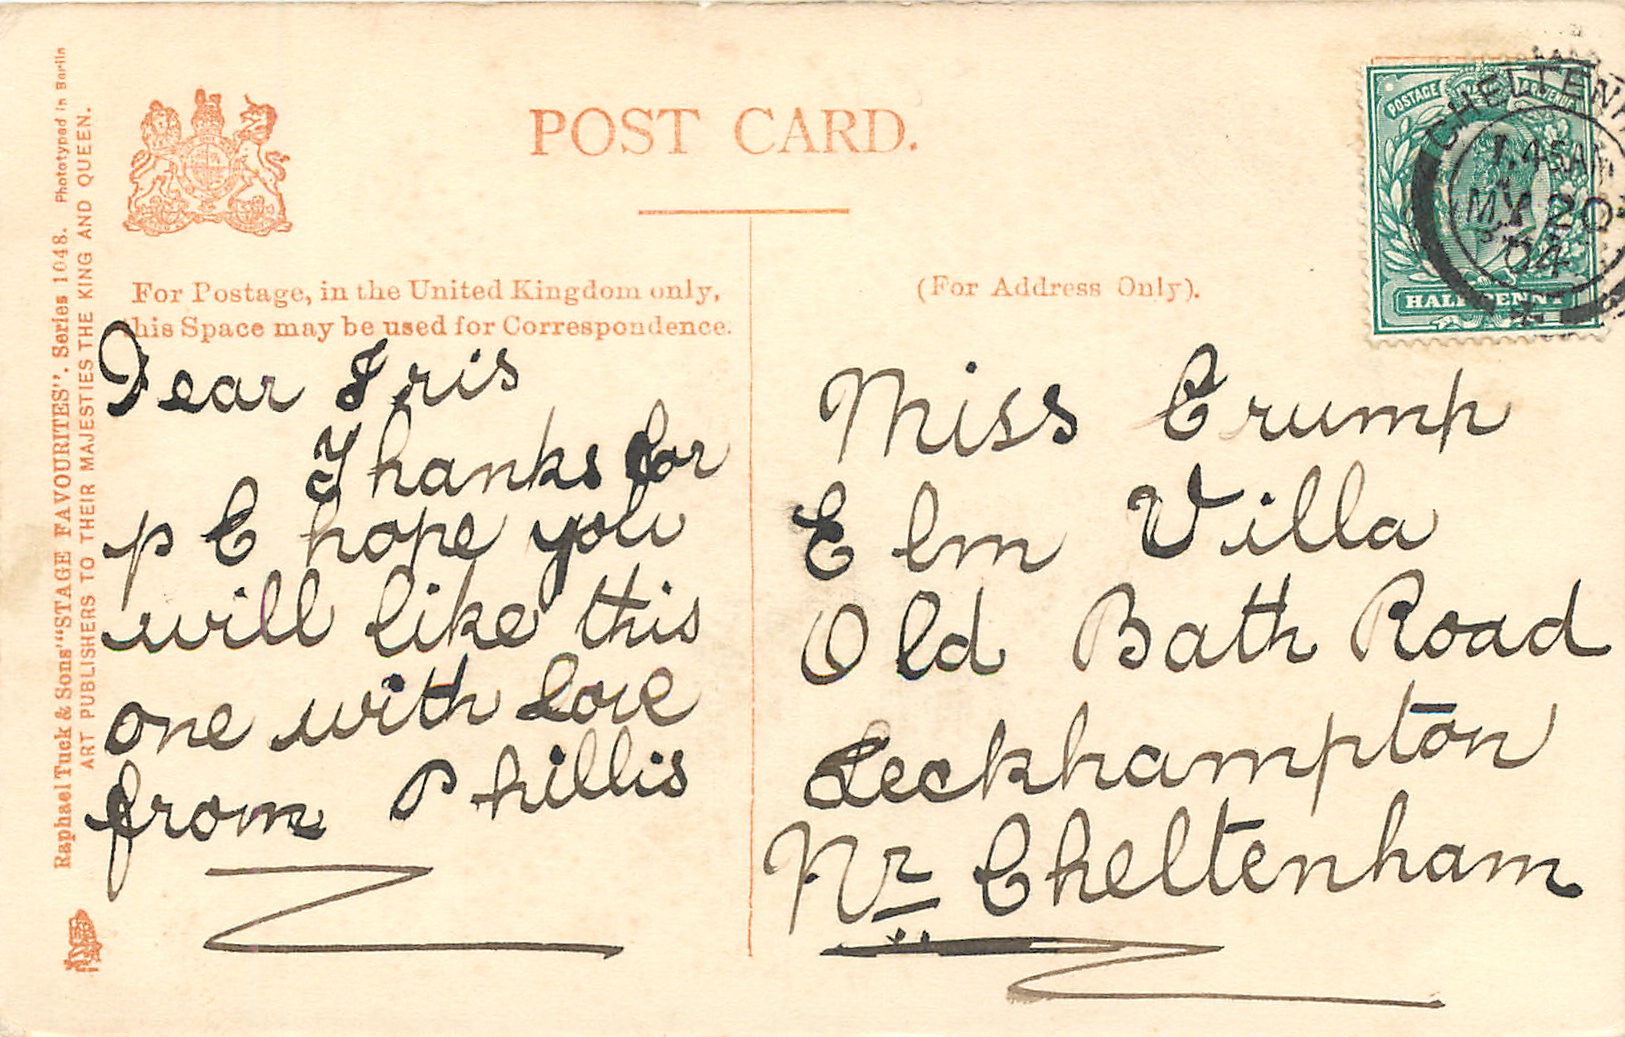 POST CARD.
For Postage, in the United Kingdom only,
this Space may be used for Correspondence.
(For Address Only).
Raphael Tuck & Sons' "STAGE FAVOURITES". Series 1048. Phototyped in Berlin
ART PUBLISHERS TO THEIR MAJESTIES THE KING AND QUEEN.
POSTAGE REVENUE
HALFPENNY
CHELTENHA
1.45AM
MY 20
04
Dear Iris
Thanks for
p C hope you
will like this
one with love
from Phillis
Miss Crump
Elm Villa
Old Bath Road
Leckhampton
Nr Cheltenham